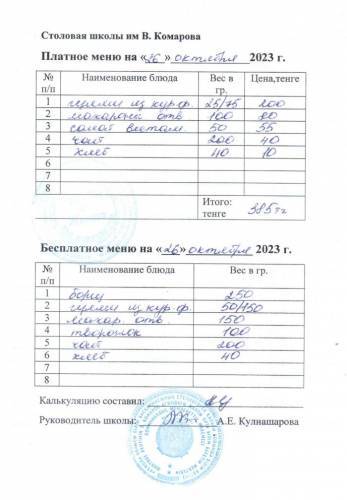 Столовая школы им В. Комарова
Платное меню на «26» октября 2023 г.
№ п/п Наименование блюда Вес в гр. Цена,тенге
1 гуляш из кур.ф. 25/75 200
2 макароны отв 100 80
3 салат витам. 50 55
4 чай 200 40
5 хлеб 40 10
6
7
8
Итого: тенге 385 тг
Бесплатное меню на «26» октября 2023 г.
№ п/п Наименование блюда Вес в гр.
1 борщ 250
2 гуляш из кур.ф. 50/50
3 макар. отв. 150
4 творожок 100
5 чай 200
6 хлеб 40
7
8
Калькуляцию составил:
Руководитель школы: А.Е. Кулнашарова